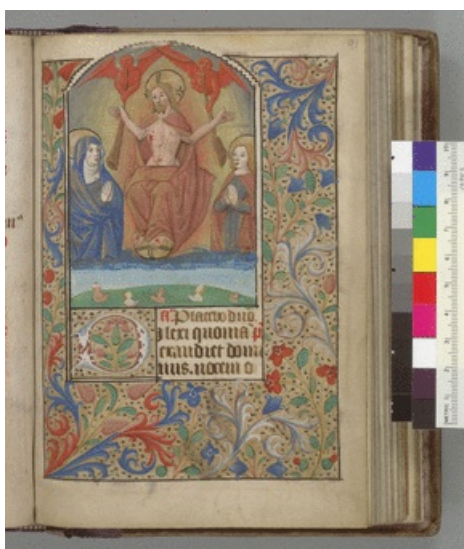 a Placebo dño.
Dilexi quonia
exaudiet domi
nus. uocem o